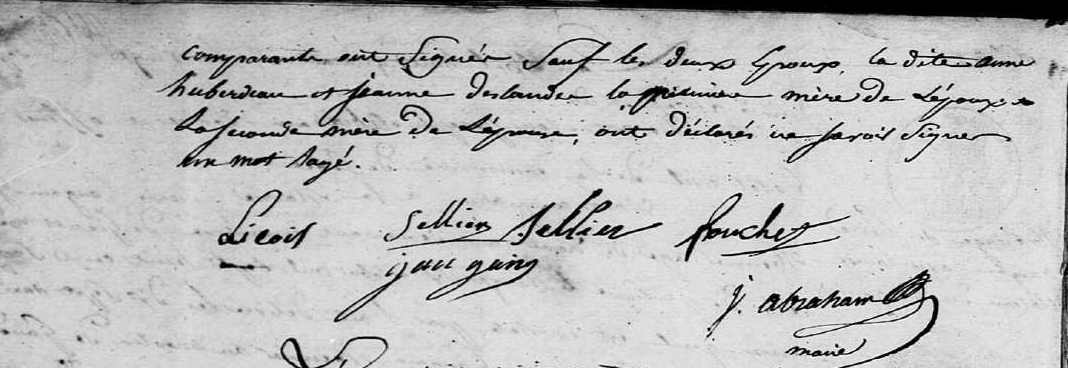 comparants ont signés sauf les deux Epoux, la dite anne
huberdeau et jeanne deslandes la premiere mère de L'époux
La seconde mère de L'épouse, ont déclarés ne savoir signer
un mot rayé.
Licois Sellier Sellier fouchet
j. abraham
maire